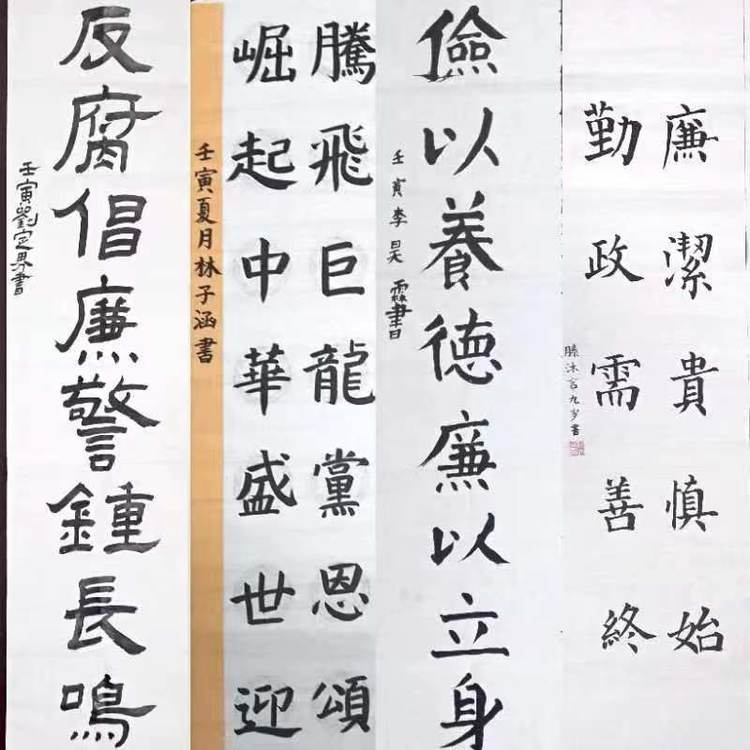 反腐倡廉警鍾長鳴
壬寅劉定界書
騰飛巨龍黨恩頌
崛起中華盛世迎
壬寅夏月林子涵書
儉以養德廉以立身
壬寅李昊霖書
廉潔貴慎始
勤政需善終
滕沐言九岁書